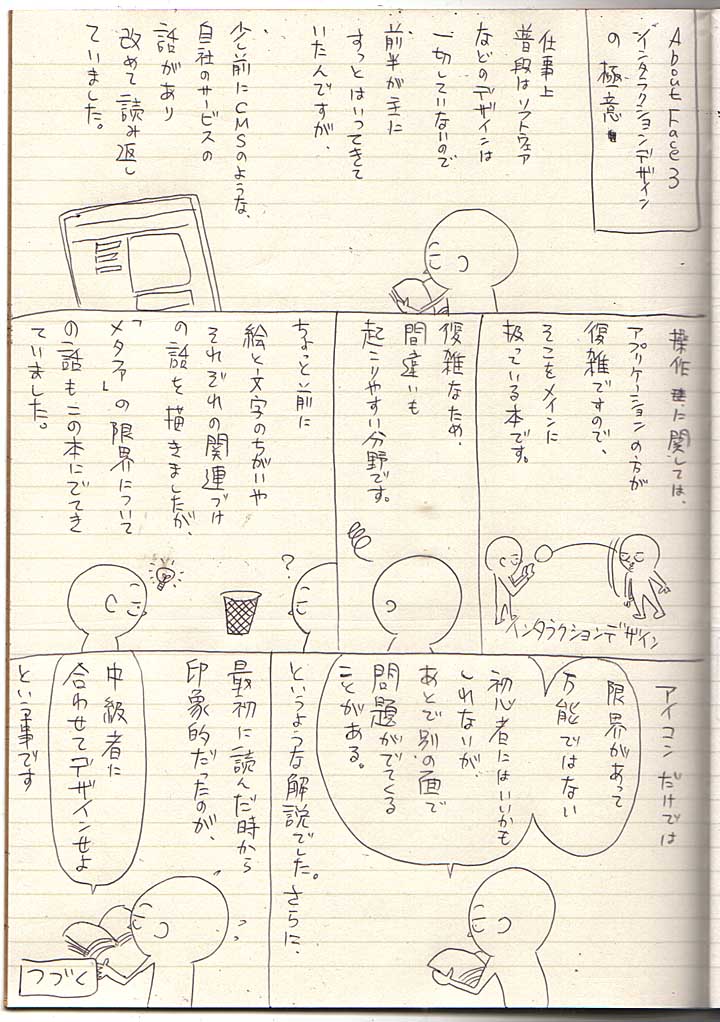 About Face 3
インタラクションデザイン
の極意
仕事上
普段はソフトウェア
などのデザインは
一切していないので
前半が主に
すっとはいってきて
いたんですが、
少し前にCMSのような、
自社のサービスの
話があり
改めて読み返し
ていました。
操作に関しては、
アプリケーションの方が
復雑ですので、
そこをメインに
扱っている本です。
インタラクションデザイン
復雑なため、
間違いも
起こりやすい分野です。
ちょっと前に
絵と文字のちがいや
それぞれの関連づけ
の話を描きましたが、
「メタファ」の限界について
の話もこの本にでてき
ていました。
?
アイコンだけでは
限界があって
万能ではない
初心者にはいいかも
しれないが、
あとで別の面で
問題がでてくる
ことがある。
というような解説でした。さらに、
最初に読んだ時から
印象的だったのが、
中級者に
合わせてデザインせよ
という事です
つづく